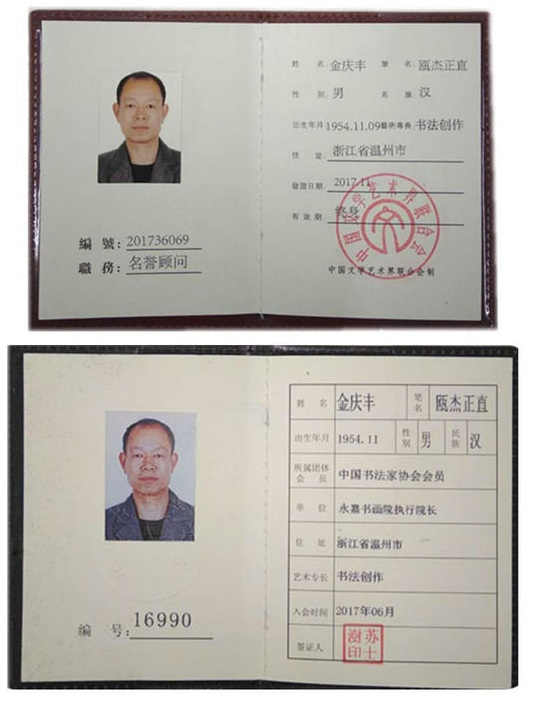 姓 名 金庆丰 筆 名 瓯杰正直
性 别 男 名 族 汉
出生年月 1954.11.09 藝術專長 书法创作
住 址 浙江省温州市
發證日期 2017.11
有效期 终身
中国文学艺术界联合会
中国文学艺术界联合会制
編 號: 201736069
職 務: 名誉顾问
姓 名 金庆丰 笔名 瓯杰正直
出生年月 1954.11 性别 男 民族 汉
所属团体会员 中国书法家协会会员
单 位 永嘉书画院执行院长
住 址 浙江省温州市
艺术专长 书法创作
入会时间 2017年06月
签证人 苏士澍印
编 号: 16990